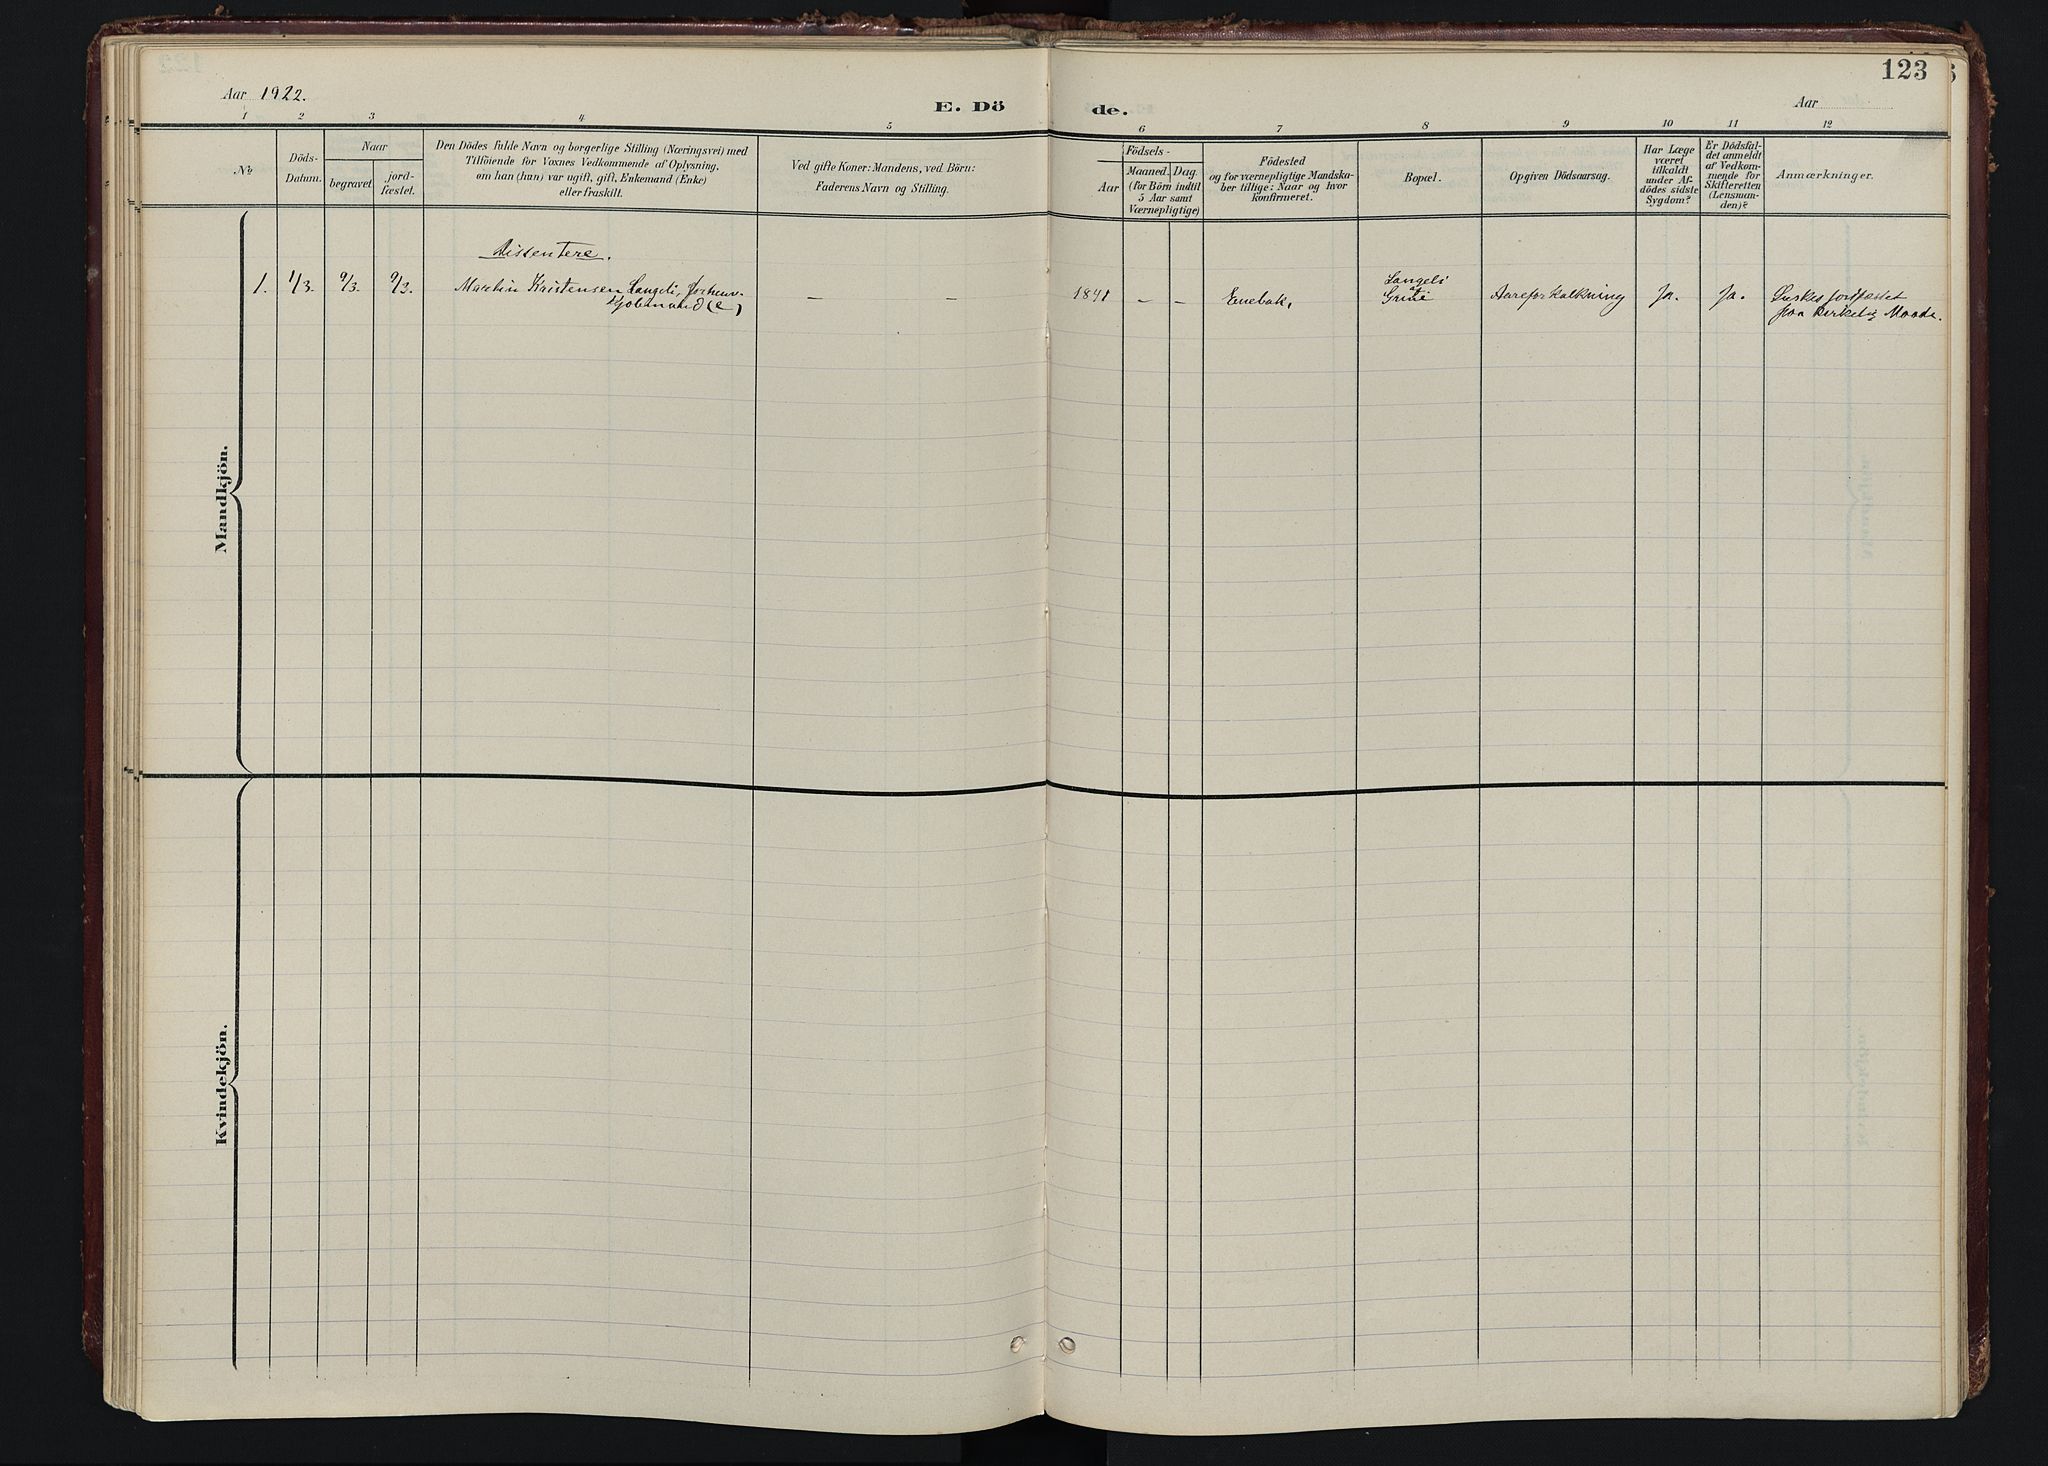 Aar 1922.
E. Dö
1
2
3
4
5
№
Döds-
Datum.
Naar
begravet.
jord-
fæstet.
Den Dödes fulde Navn og borgerlige Stilling (Næringsvei) med
Tilföiende for Voxnes Vedkommende af Oplysning,
om han (hun) var ugift, gift, Enkemand (Enke)
eller fraskilt.
Ved gifte Koner: Mandens, ved Börn:
Faderens Navn og Stilling.
Mandkjön.
Dissentere.
1.
1/3.
9/3.
9/3.
Martin Kristensen Langeli, forhenv.
(e)
—
—
Kvindekjön.
123
de.
Aar
6
7
8
9
10
11
12
Födsels-
Aar
Maaned.
Dag.
(for Börn indtil
5 Aar samt
Værnepligtige)
Födested
og for værnepligtige Mandska-
ber tillige: Naar og hvor
konfirmeret.
Bopæl.
Opgiven Dödsaarsag.
Har Læge
været
tilkaldt
under Af-
dödes sidste
Sygdom?
Er Dödsfal-
det anmeldt
af Vedkom-
mende for
Skifteretten
(Lensman-
den)?
Anmærkninger.
1841
—
—
Enebak,
Langeli
Aareforkalkning
Ja.
Ja.
jordfæstet
paa kirkelig Maade.